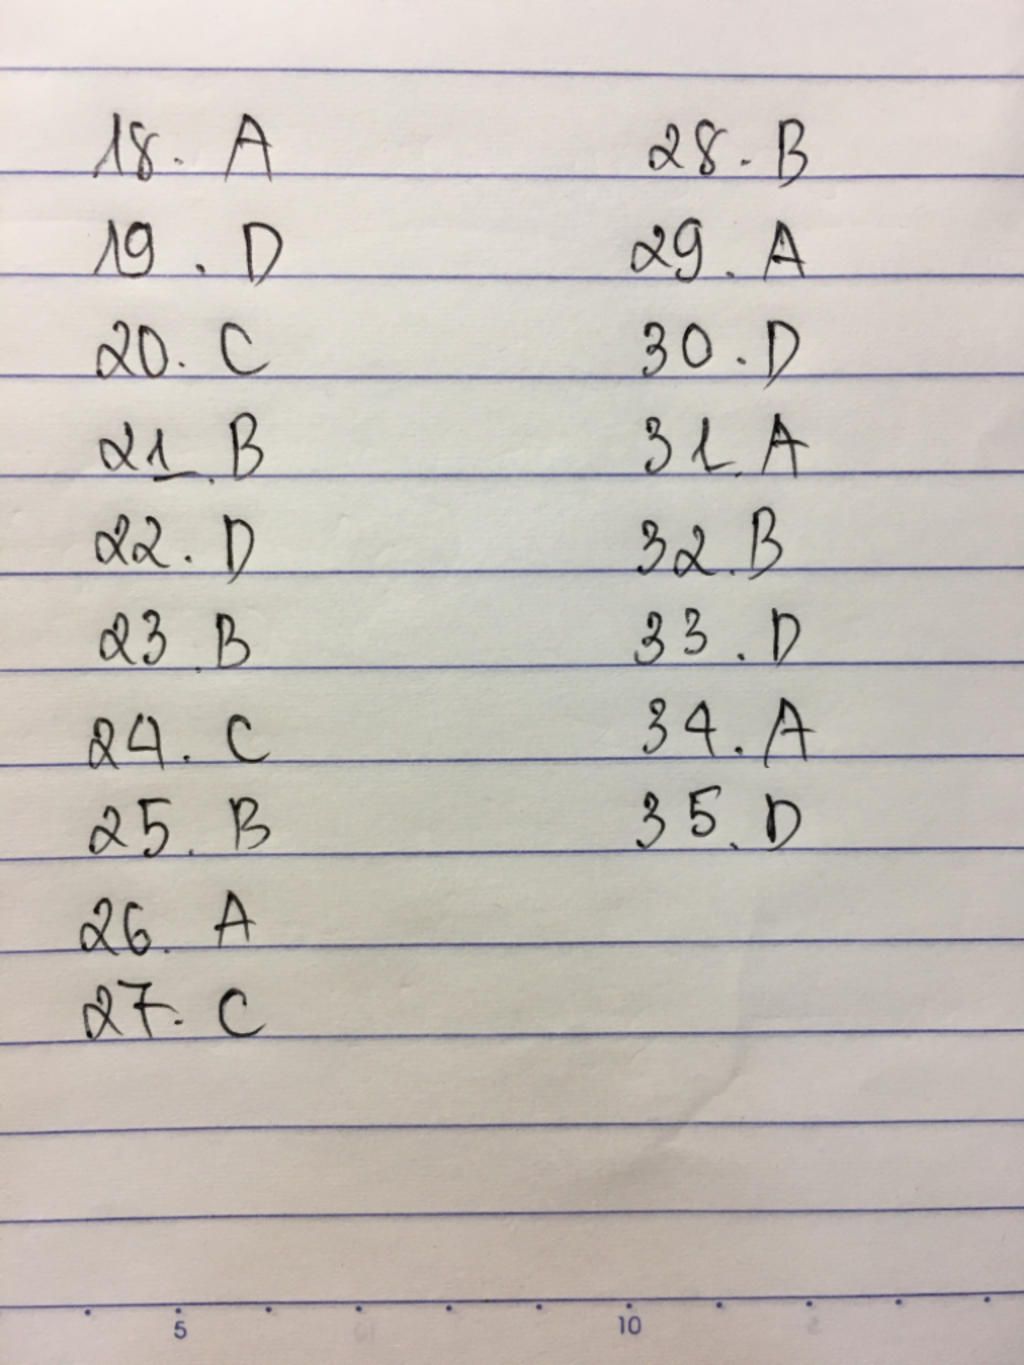 18. A
19. D
20. C
21. B
22. D
23. B
24. C
25. B
26. A
27. C
28. B
29. A
30. D
31. A
32. B
33. D
34. A
35. D
5 10